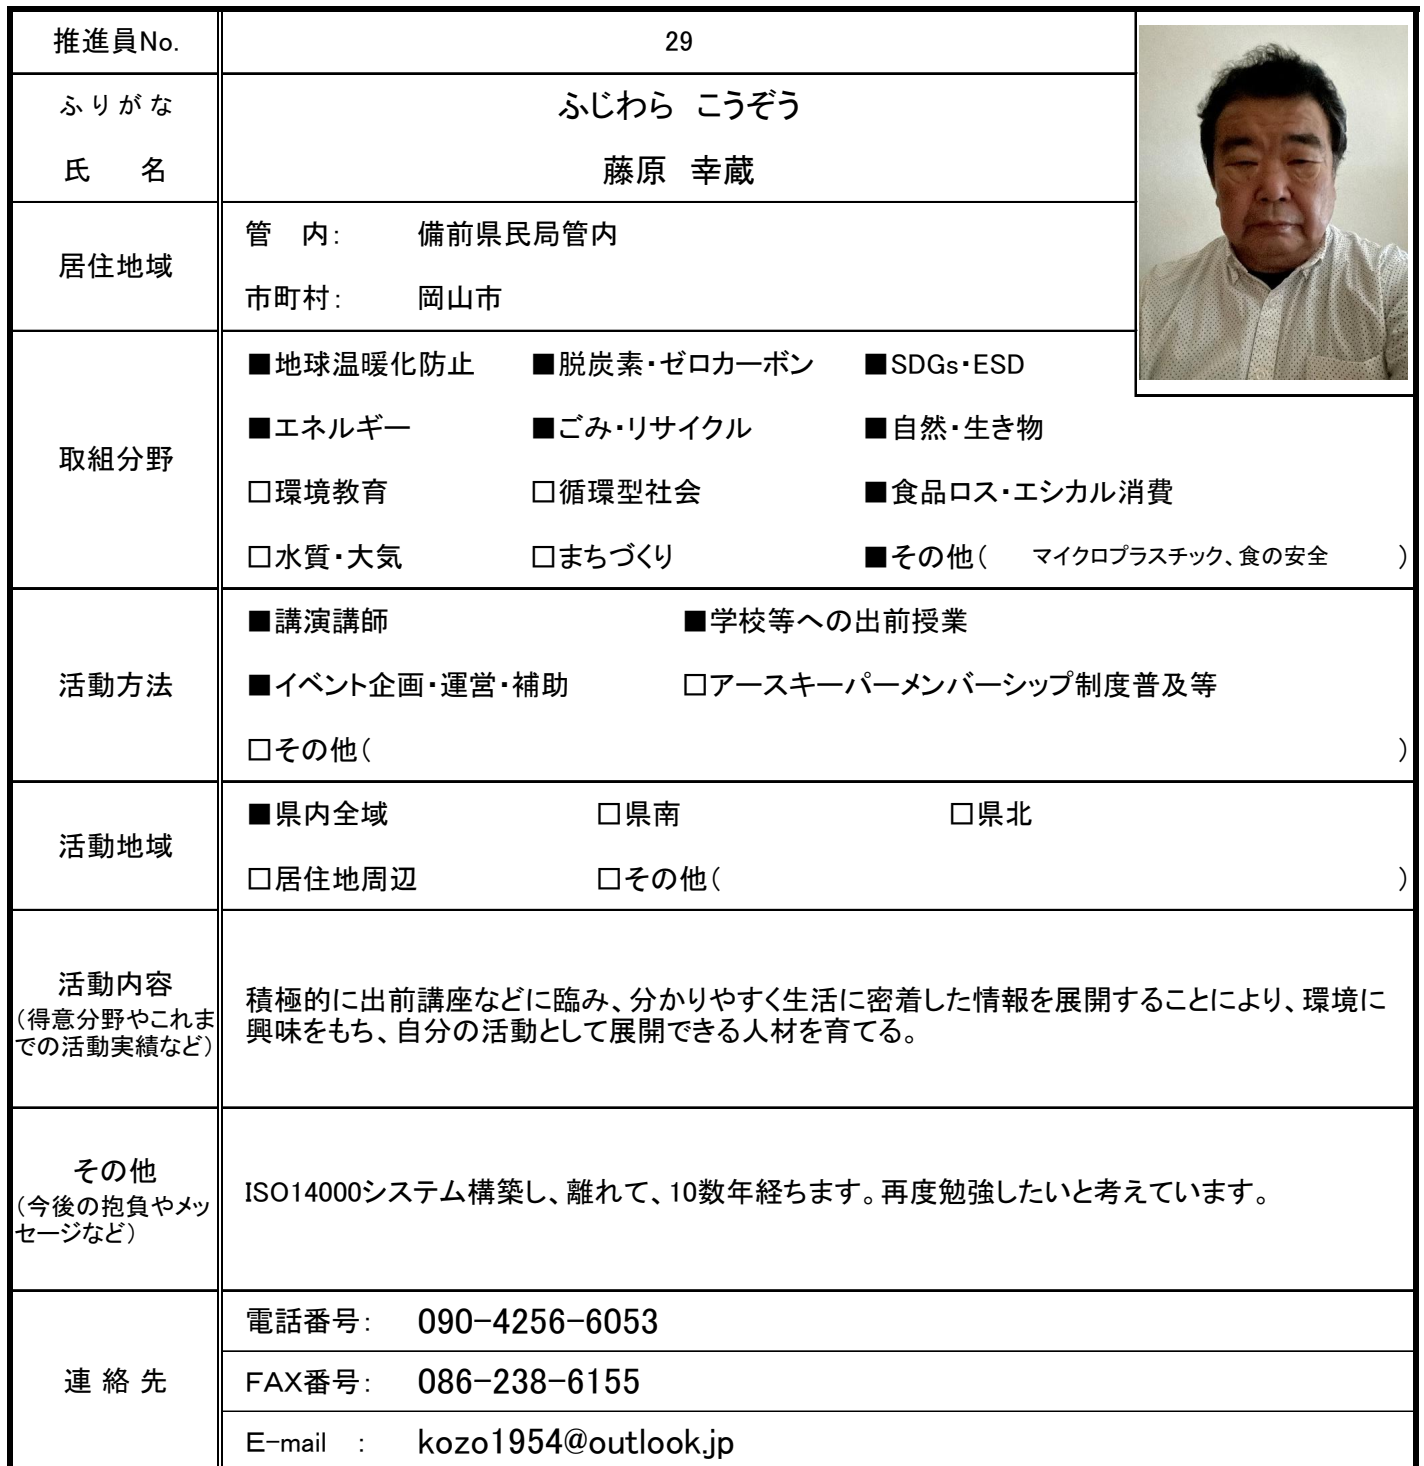 推進員No. 29
ふりがな ふじわら こうぞう
氏 名 藤原 幸蔵
居住地域
管 内: 備前県民局管内
市町村: 岡山市
取組分野
■地球温暖化防止 ■脱炭素・ゼロカーボン ■SDGs・ESD
■エネルギー ■ごみ・リサイクル ■自然・生き物
□環境教育 □循環型社会 ■食品ロス・エシカル消費
□水質・大気 □まちづくり ■その他( マイクロプラスチック、食の安全 )
活動方法
■講演講師 ■学校等への出前授業
■イベント企画・運営・補助 □アースキーパーメンバーシップ制度普及等
□その他( )
活動地域
■県内全域 □県南 □県北
□居住地周辺 □その他( )
活動内容
(得意分野やこれま
での活動実績など)
積極的に出前講座などに臨み、分かりやすく生活に密着した情報を展開することにより、環境に
興味をもち、自分の活動として展開できる人材を育てる。
その他
(今後の抱負やメッ
セージなど)
ISO14000システム構築し、離れて、10数年経ちます。再度勉強したいと考えています。
連絡先
電話番号: 090-4256-6053
FAX番号: 086-238-6155
E-mail : kozo1954@outlook.jp